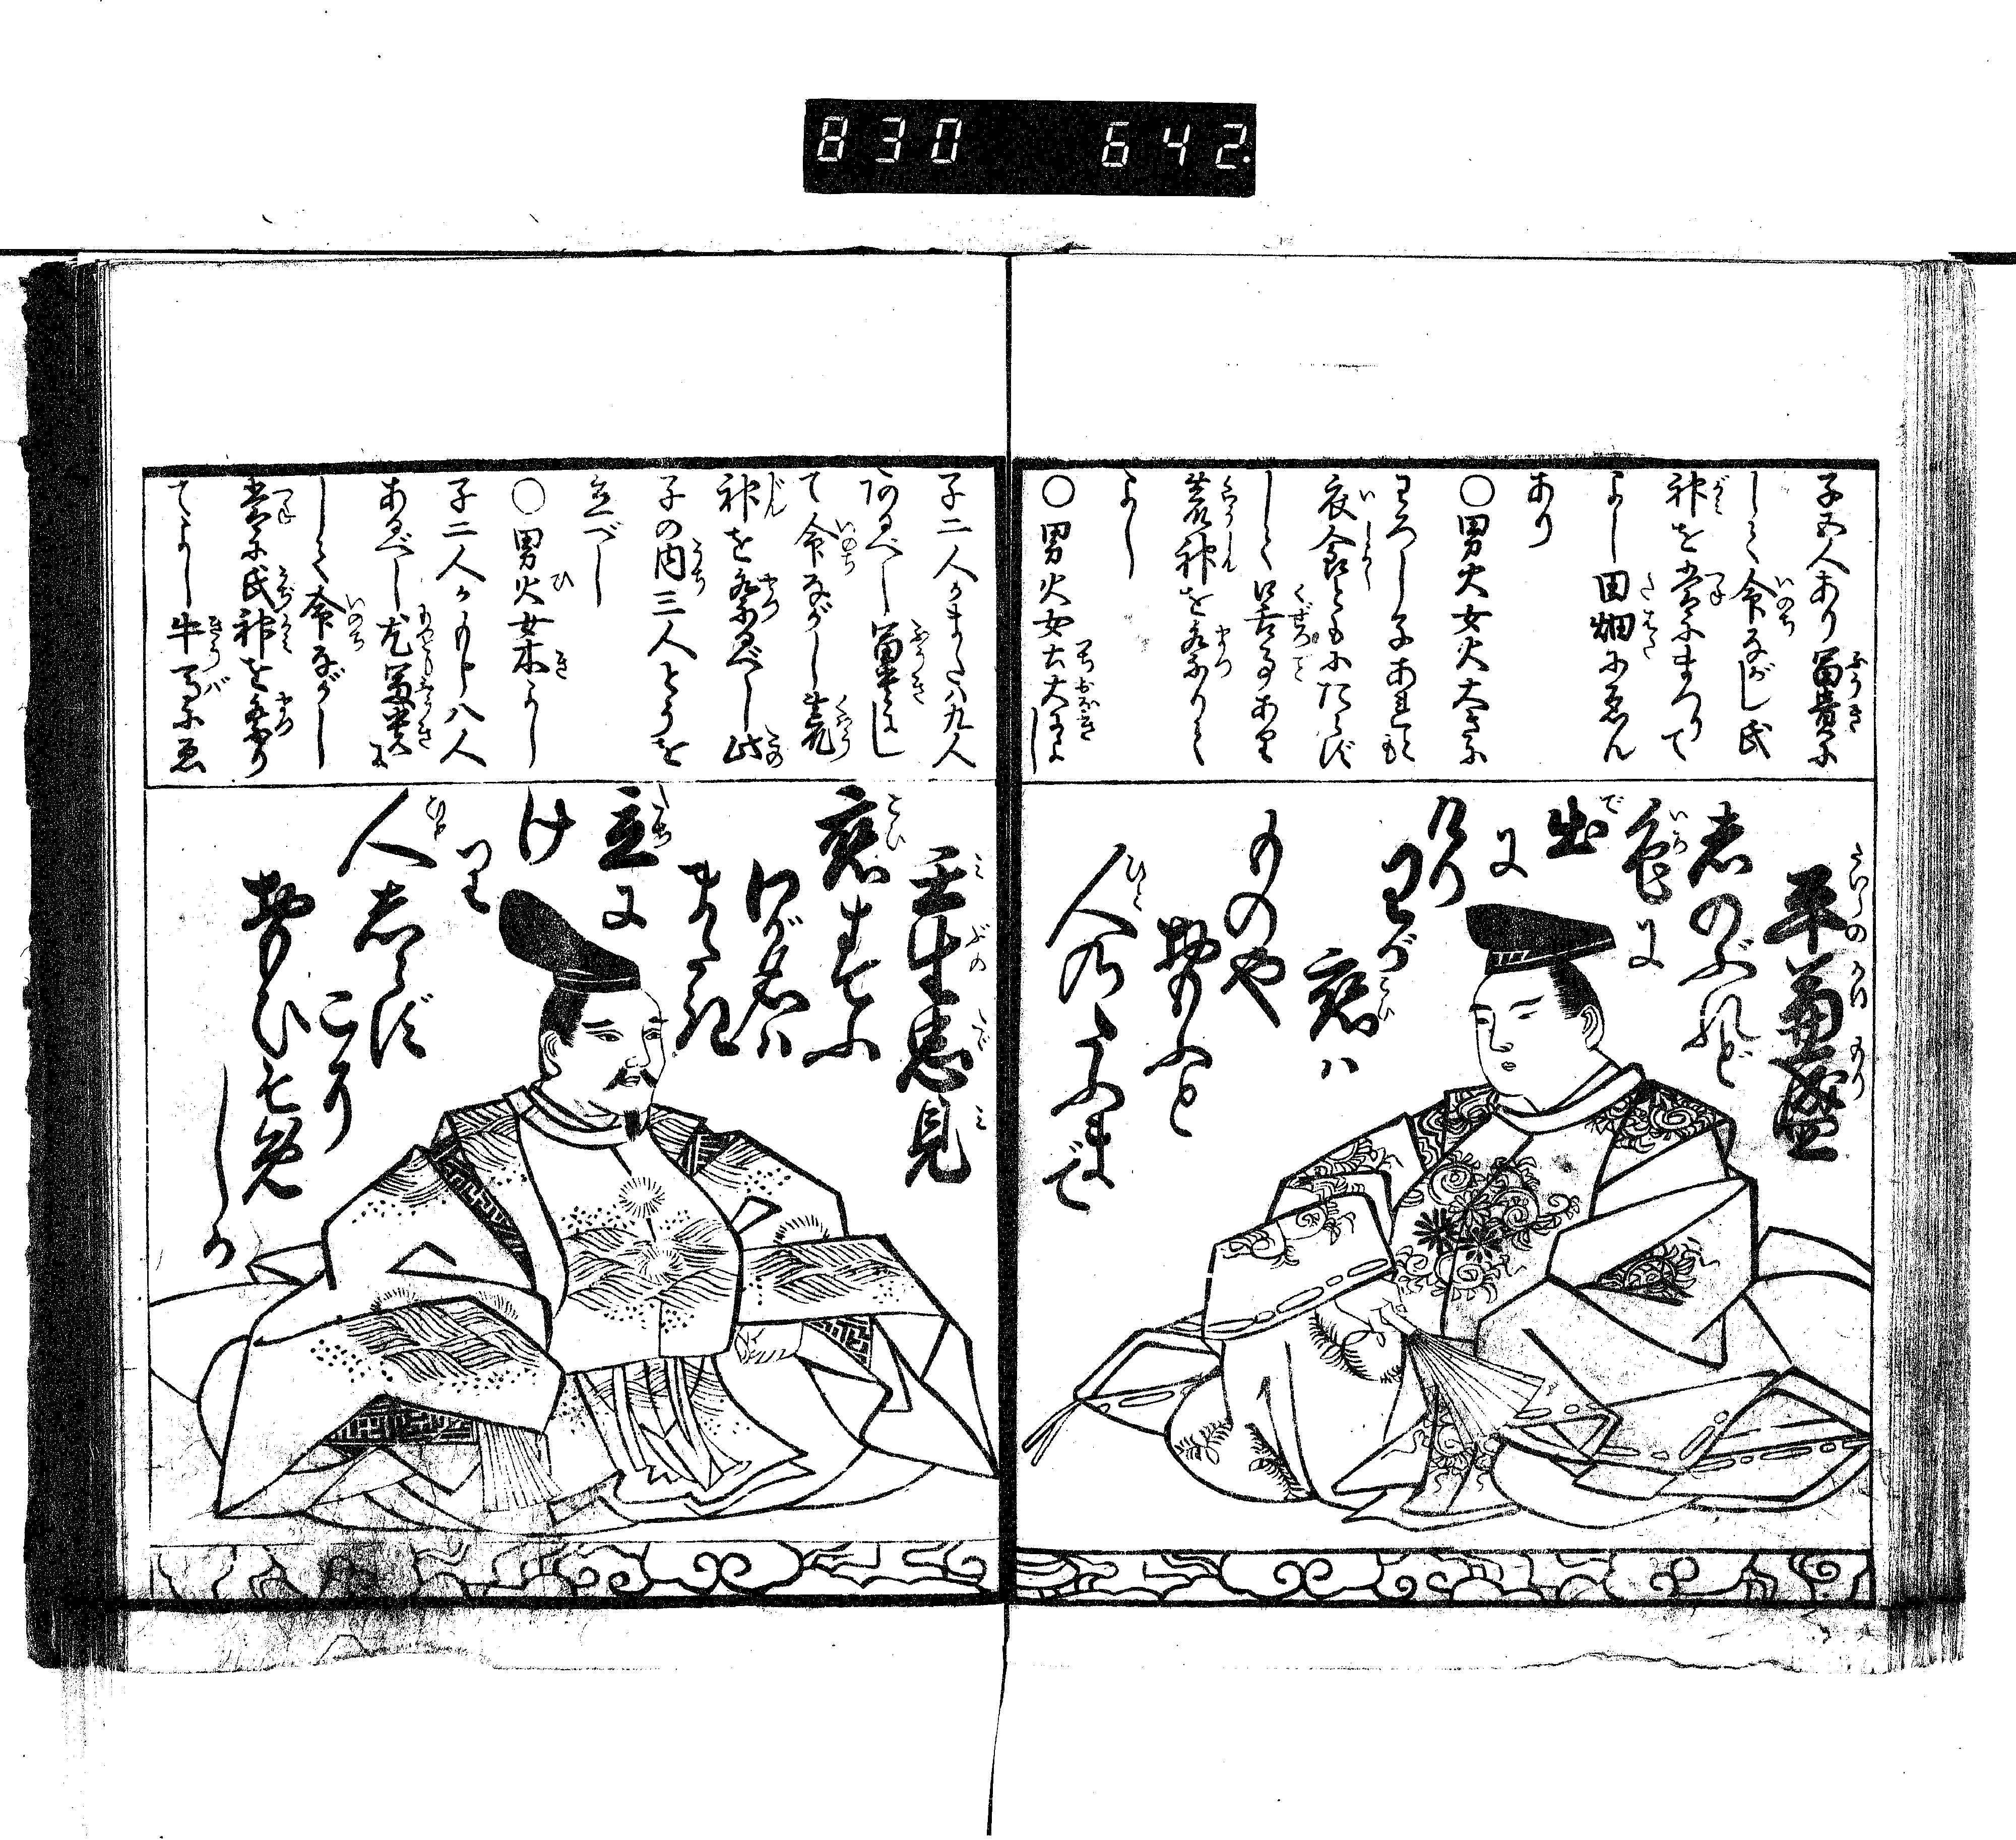 830 642
子五人あり冨貴に
して命ながし氏
神を常にまつりて
よし田畑にゑん
あり
○男火女火大きに
わろし子あれども
衣食ともにたらず
して口舌事あり
荒神を祭りて
よし
○男火女土大によし
平兼盛
志のぶれど
色に
出
に
けり
わが
恋ハ
ものや
おもふと
人の
とふまで
子二人かまた八九人
あるべし冨貴にし
て命ながし荒
神を祭るべし此
子の内三人とくを
立べし
○男火女木よし
子二人かもしハ八人
あるべし尤冨貴に
して命ながし
常に氏神を祭り
てよし牛馬にゑ
壬生忠見
恋すてふ
わが名ハ
まだき
立に
け
り
人しれず
こそ
おもひそめ
しか